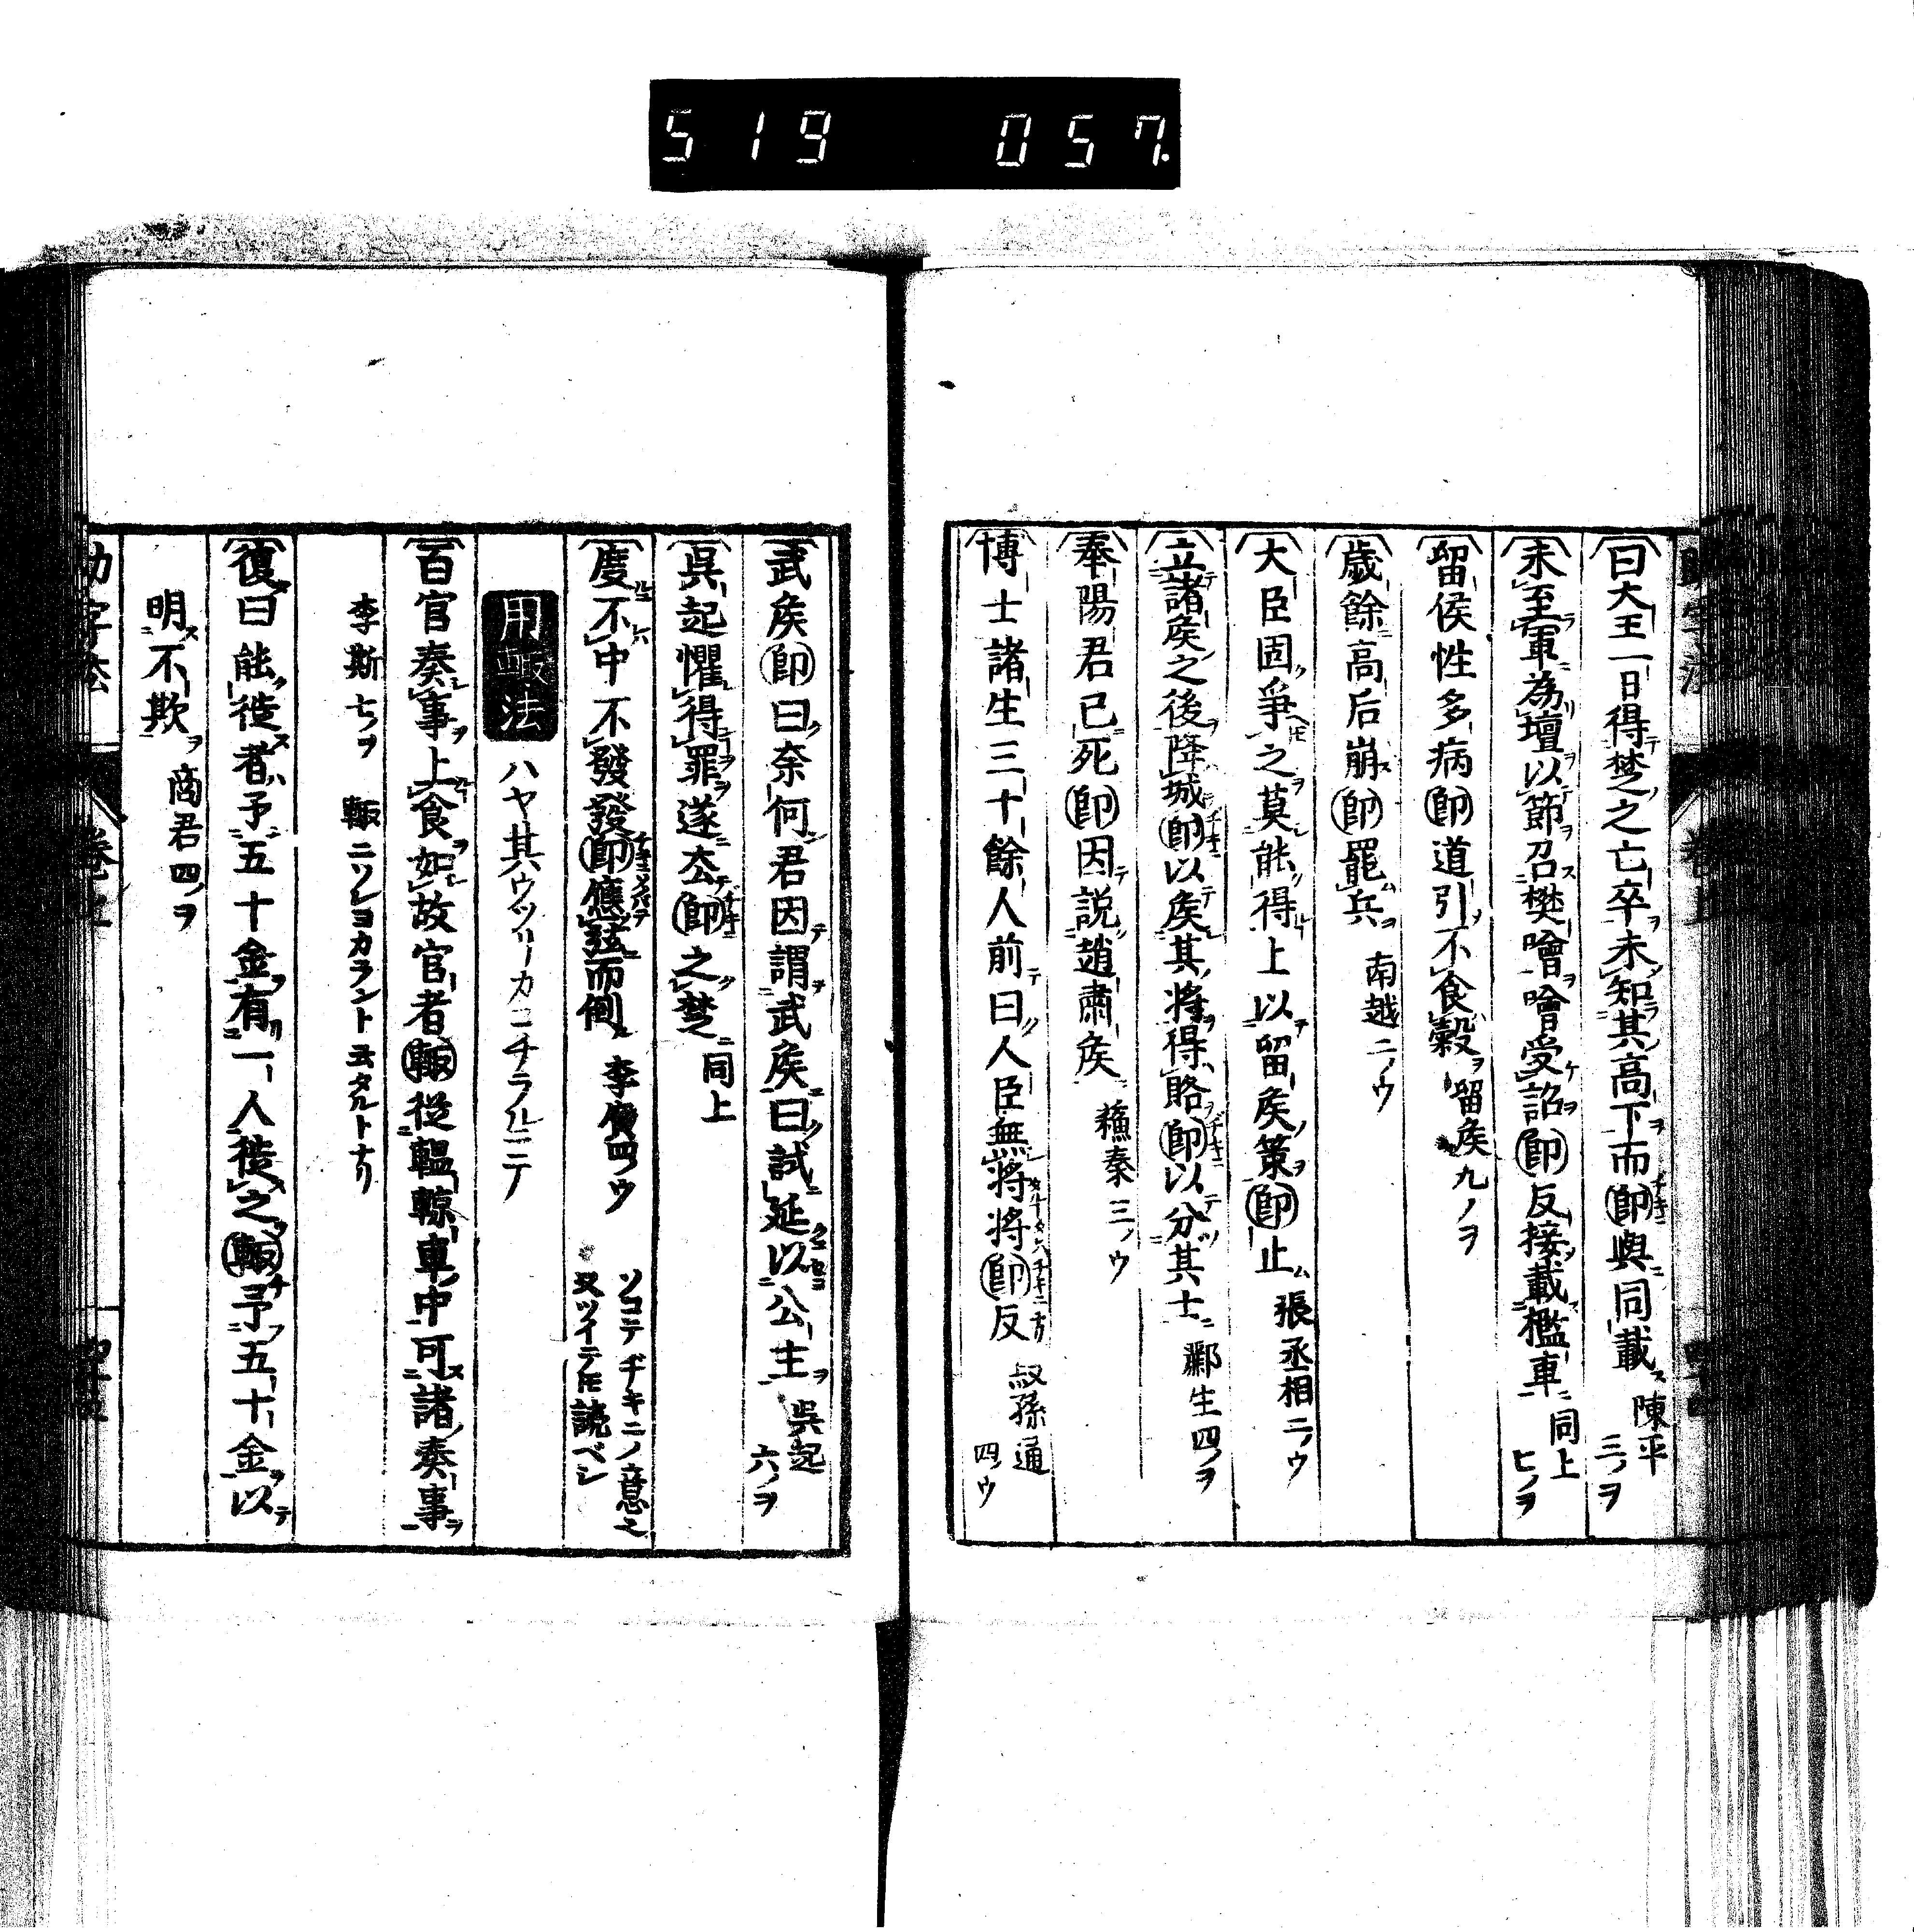 519 057
曰大王一日得楚之亡卒未知其高下而即與同載 陳平三ノヲ
未至軍為壇以節召樊噲噲受詔即反接載檻車 同上七ノヲ
留侯性多病即道引不食穀 留矦九ノヲ
歲餘高后崩即罷兵 南越二ノウ
大臣固爭之莫能得上以留矦策即止 張丞相二ノウ
立諸矦之後降城即以矦其將得賂即以分其士 酈生四ノヲ
奉陽君已死即因説趙肅矦 蘓秦三ノウ
博士諸生三十餘人前曰人臣無將將即反 叔孫通四ノウ
武矦即曰奈何君因謂武矦曰試延以公主 吳起六ノヲ
吳起懼得罪遂去即之楚 同上
度不中不發發即應弦而倒 李廣四ノウ ソコテヂキニノ意之又ツイテ𪜈読ベシ
用輙法 ハヤ其ウツリーカニチラルニテ
百官奏事上食如故官者輙從轀輬車中可諸奏事
李斯七ノヲ 輙ニソレヨカラントヱタルトナリ
復曰能徙者予五十金有一人徙之輙予五十金以
明不欺 商君四ノヲ